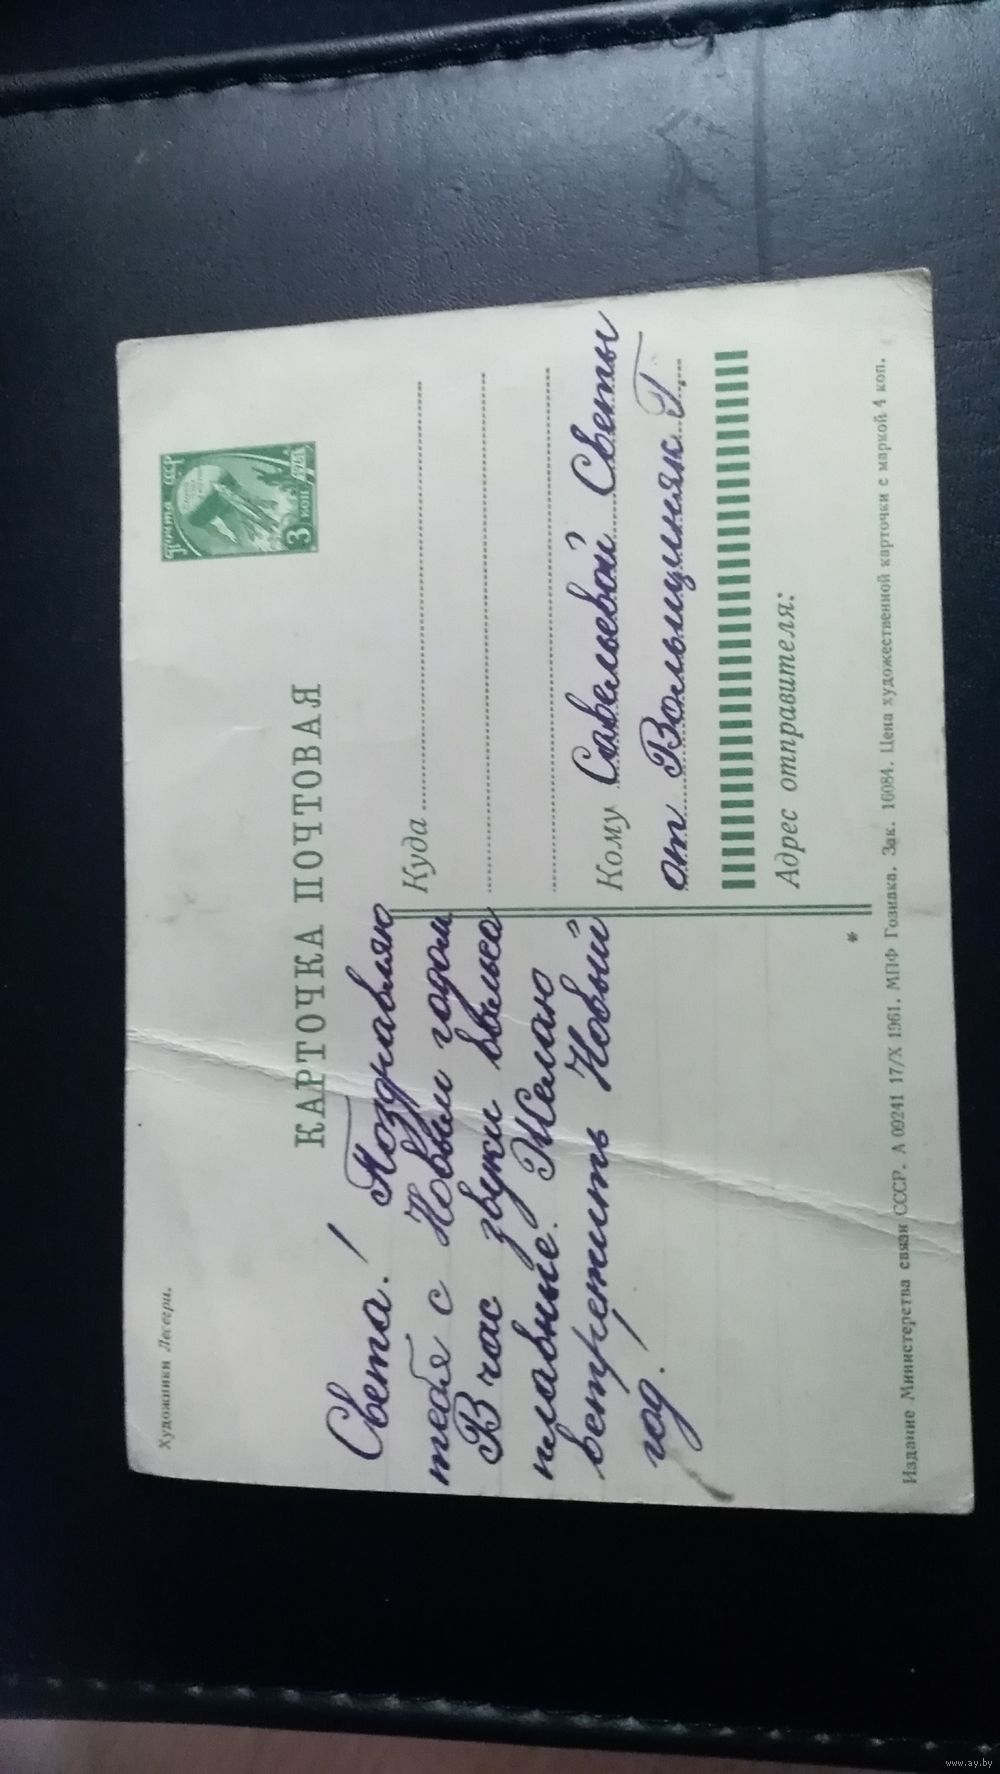 Художники Лесегри.
ПОЧТА СССР
3 КОП
КАРТОЧКА ПОЧТОВАЯ
Света! Поздравляю
тебя с Новым годом
В час звуки вальса
плавные. Желаю
встретить Новый
год!
Куда
Кому Савельевой Светы
от Вольмциняк Г.
Адрес отправителя:
*
Издание Министерства связи СССР. А 09241 17/X 1961. МПФ Гознака. Зак. 16084. Цена художественной карточки с маркой 4 коп.
www.ay.by